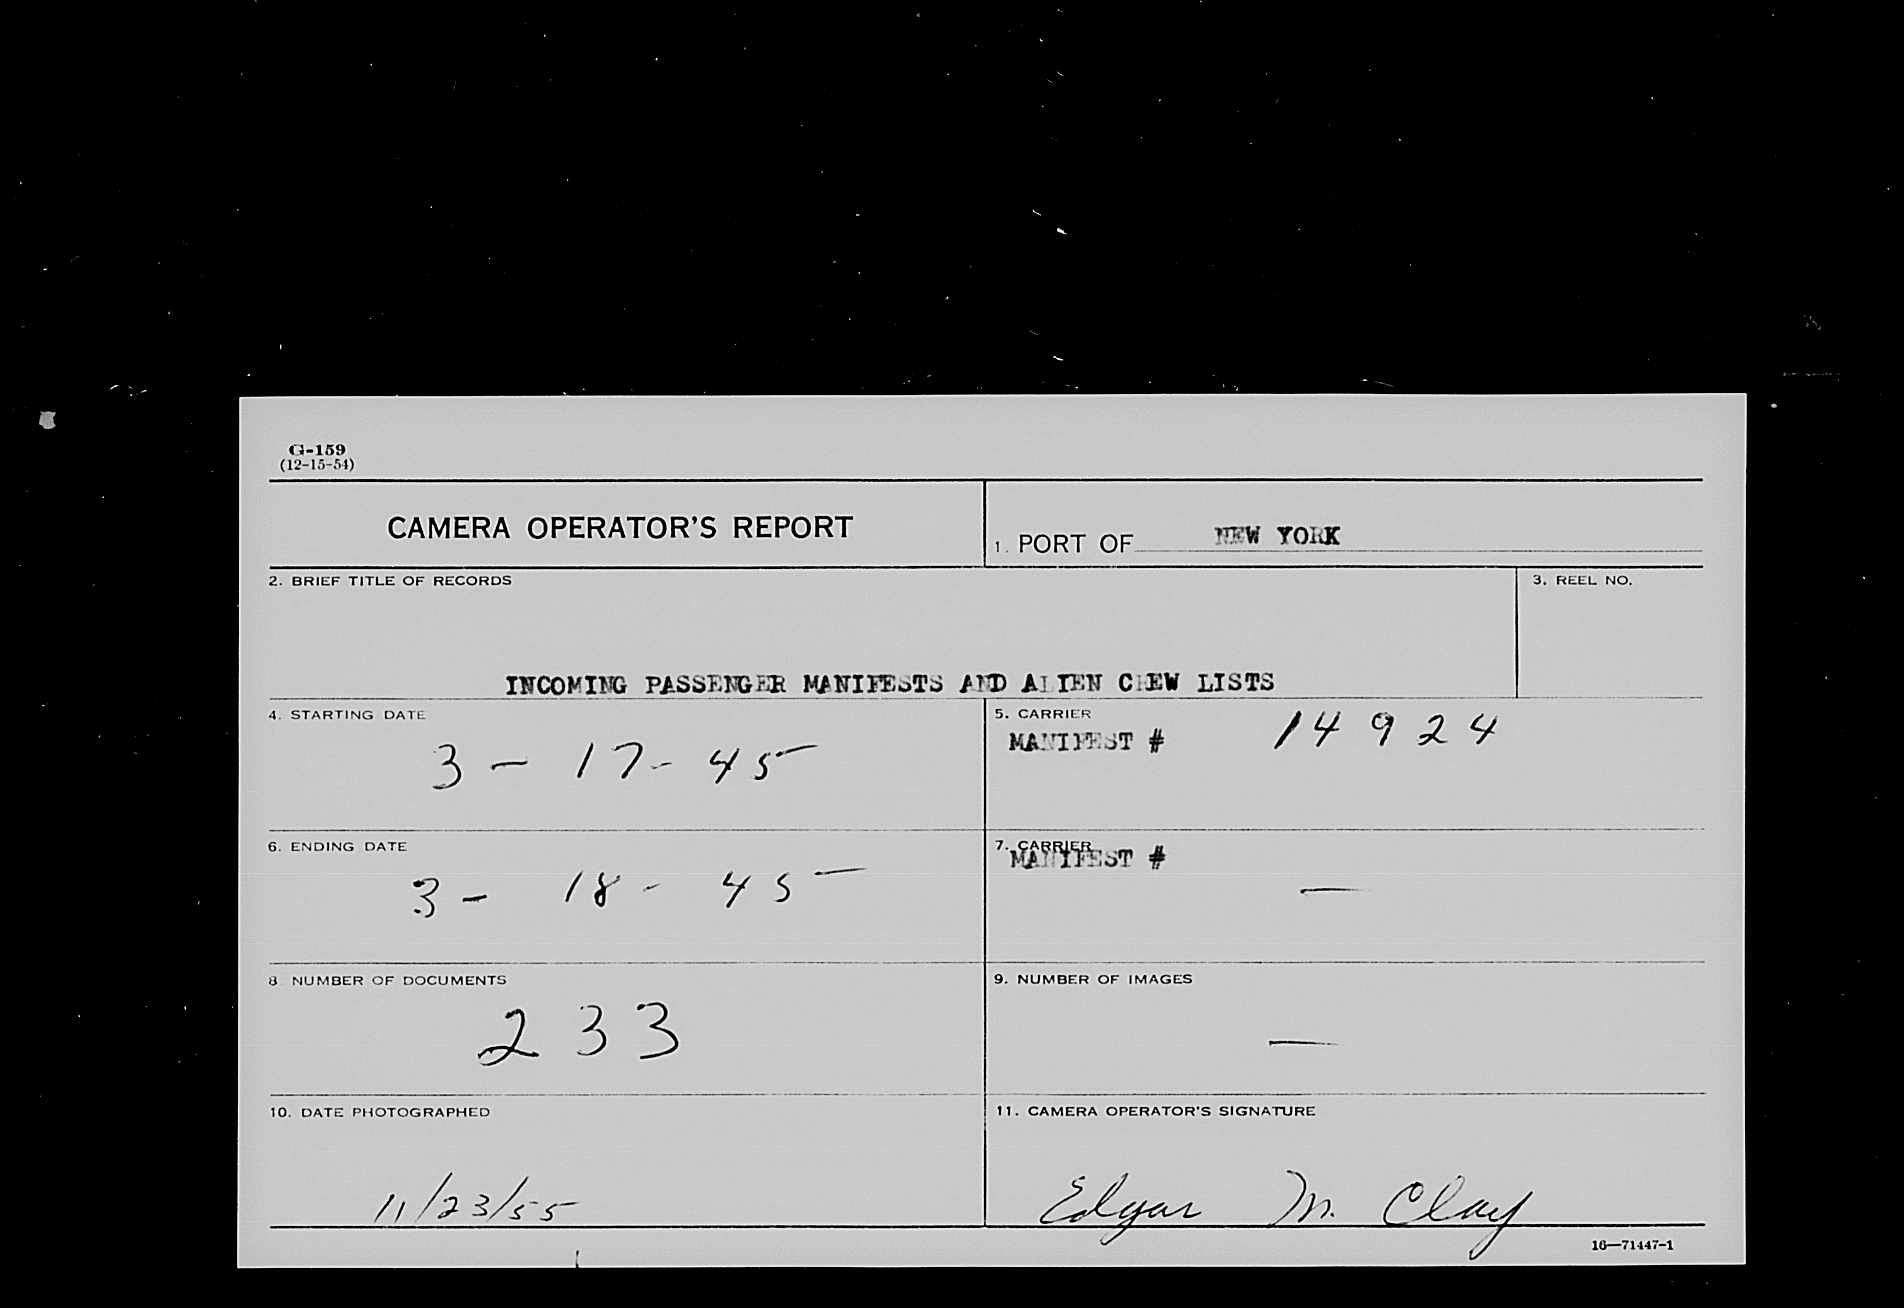 G-159
(12-15-54)
CAMERA OPERATOR'S REPORT
1. PORT OF NEW YORK
2. BRIEF TITLE OF RECORDS
3. REEL NO.
INCOMING PASSENGER MANIFESTS AND ALIEN CREW LISTS
4. STARTING DATE
3 - 17 - 45
5. CARRIER
MANIFEST # 14924
6. ENDING DATE
3 - 18 - 45
7. CARRIER
MANIFEST #
—
8. NUMBER OF DOCUMENTS
233
9. NUMBER OF IMAGES
—
10. DATE PHOTOGRAPHED
11/23/55
11. CAMERA OPERATOR'S SIGNATURE
Edgar M. Clay
16—71447-1